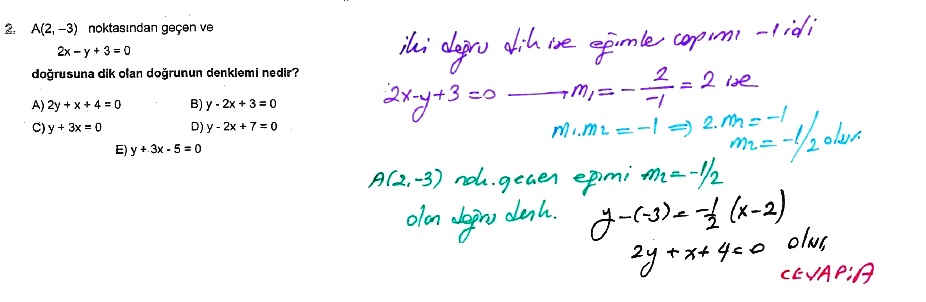 2. A(2, –3) noktasından geçen ve
2x – y + 3 = 0
doğrusuna dik olan doğrunun denklemi nedir?
A) 2y + x + 4 = 0 B) y - 2x + 3 = 0
C) y + 3x = 0 D) y - 2x + 7 = 0
E) y + 3x - 5 = 0
iki doğru dik ise eğimler çarpımı -1 idi
2x-y+3=0 → m₁ = - 2/-1 = 2 ise
m₁.m₂ = -1 ⇒ 2.m₂ = -1
m₂ = -1/2 olur.
A(2,-3) nok. geçen eğimi m₂ = -1/2
olan doğru denk. y-(-3) = -1/2 (x-2)
2y + x + 4 = 0 olur,
CEVAP: A